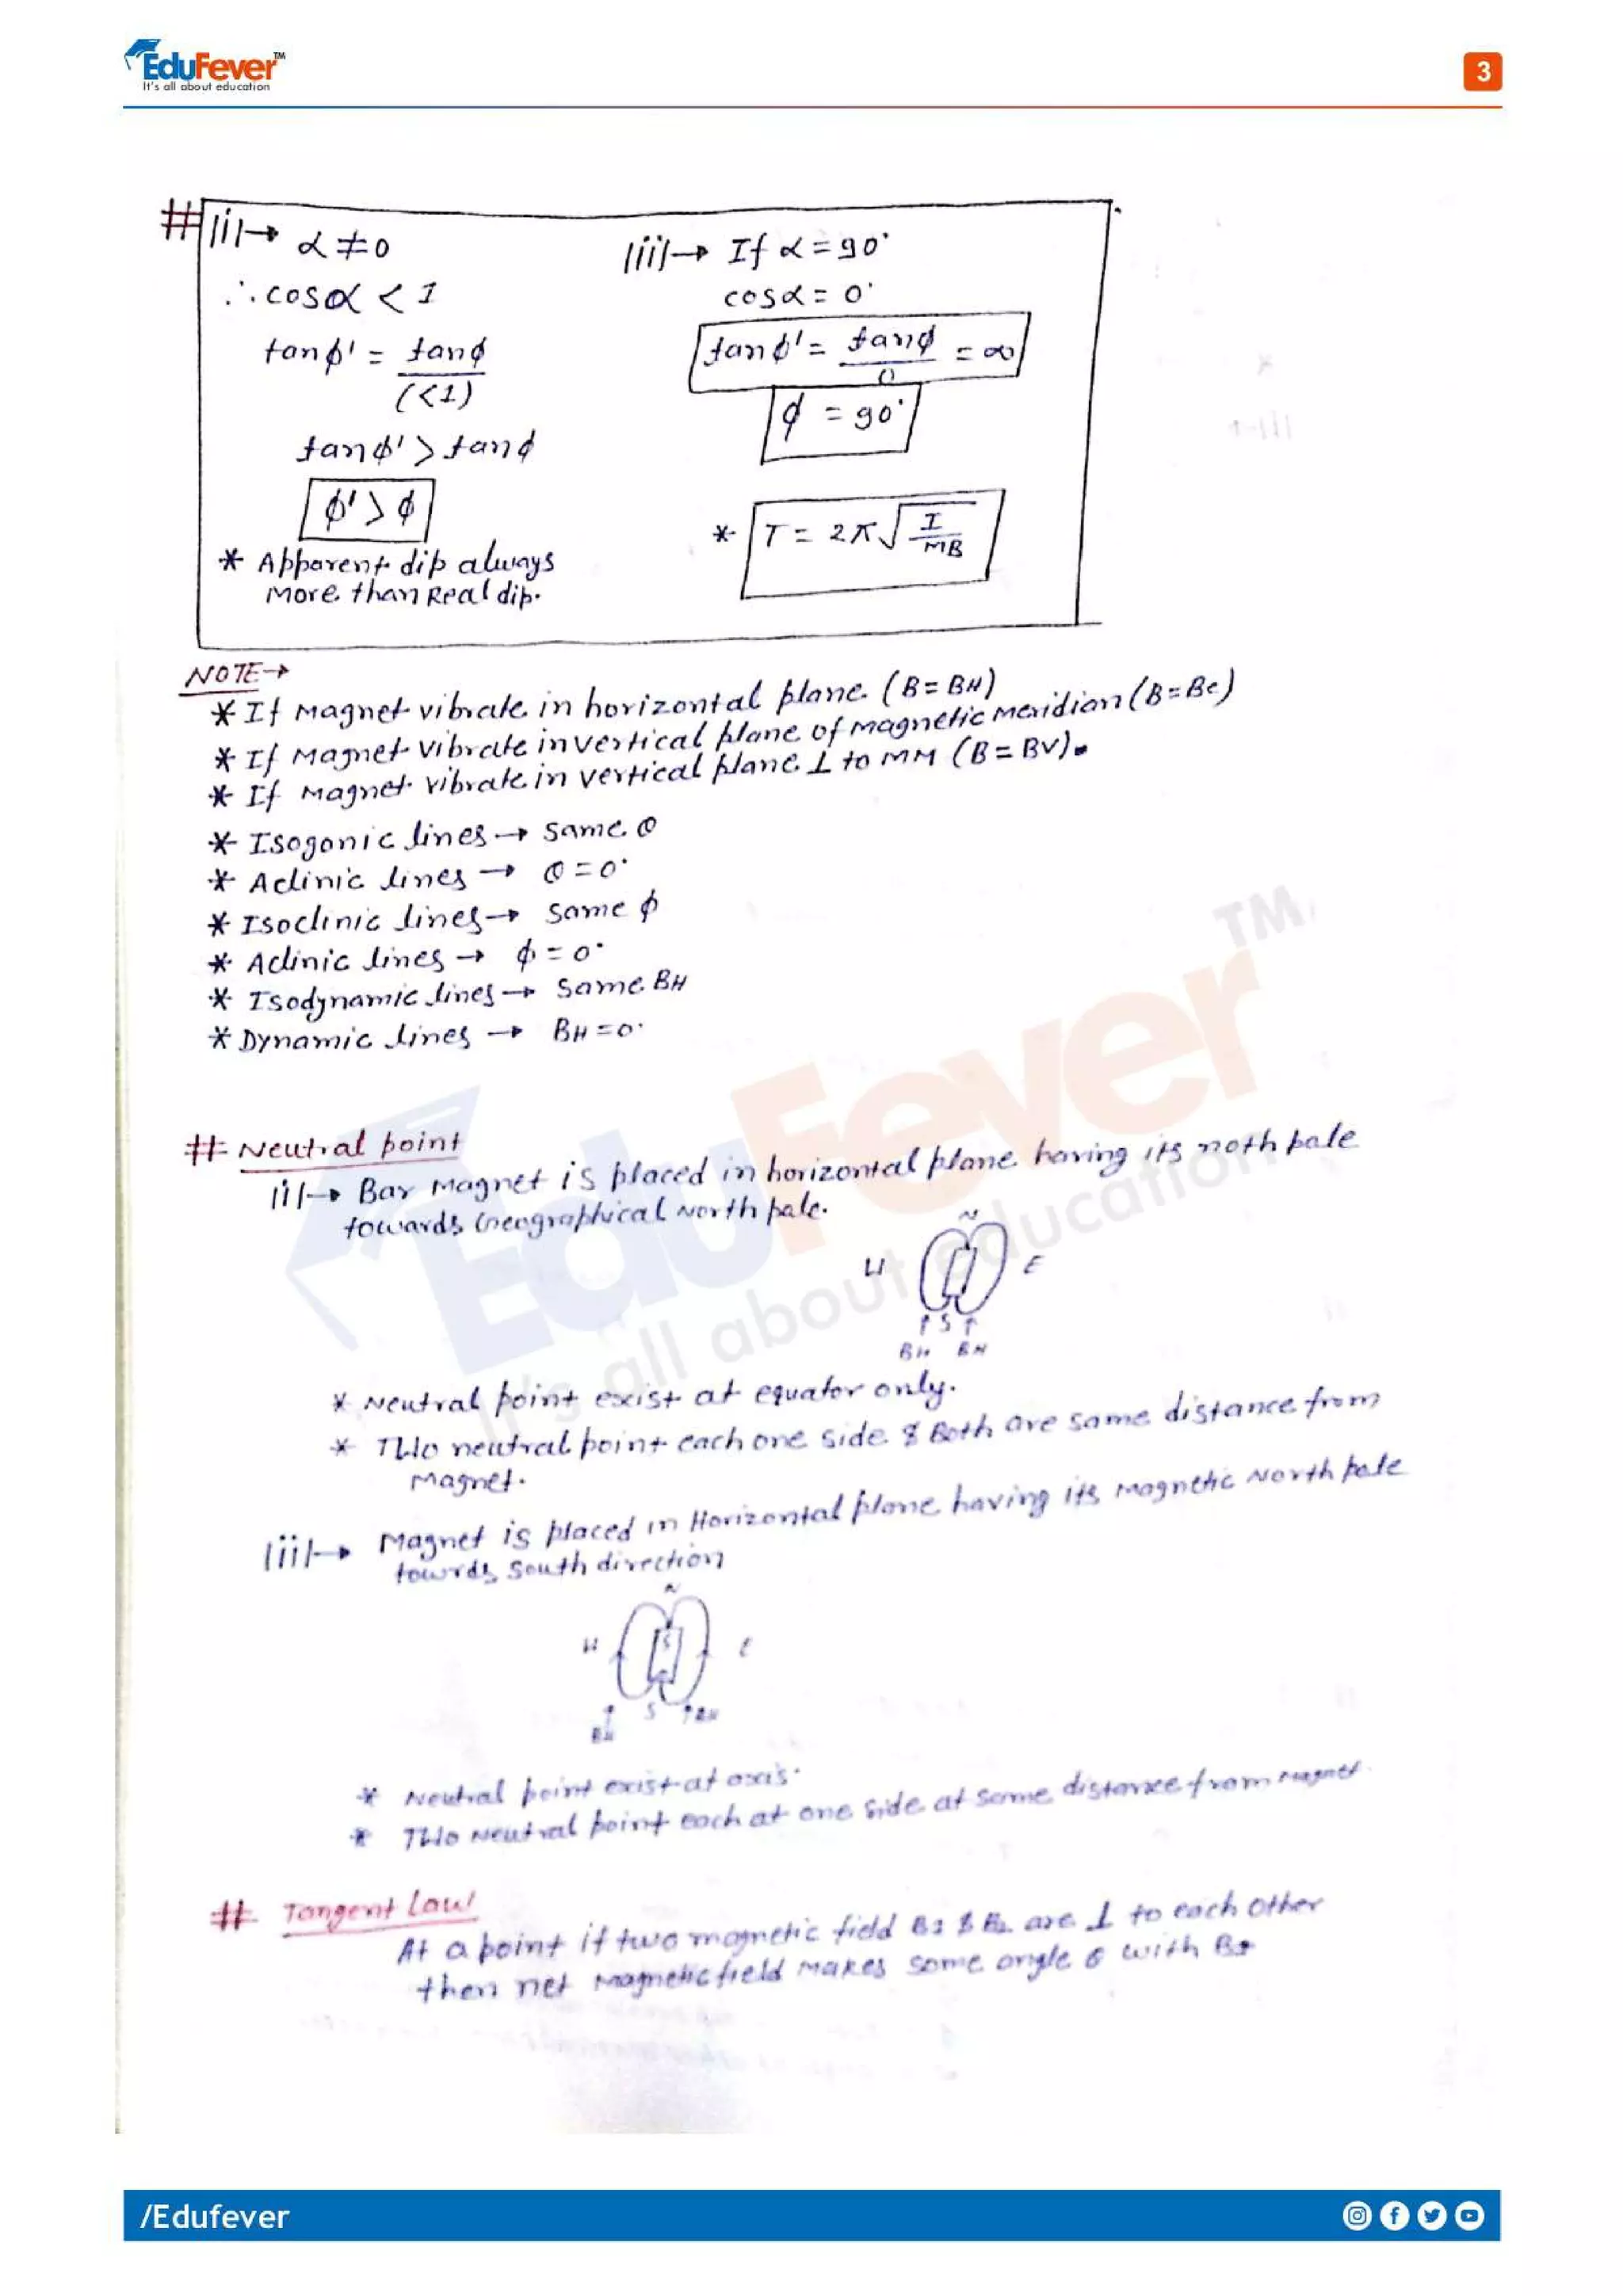 EduFever™
It's all about education
3
# |i|→ α ≠ 0
∴ cosα < 1
tanϕ' = tanϕ / (<1)
tanϕ' > tanϕ
ϕ' > ϕ
* Apparent dip always
More than Real dip.
|ii|→ If α = 90°
cosα = 0°
tanϕ' = tanϕ / 0 = ∞
ϕ = 90°
* T = 2π√(I/MB)
NOTE→
* If Magnet vibrate in horizontal plane (B = BH)
* If Magnet vibrate in vertical plane of magnetic meridian (B = Be)
* If Magnet vibrate in vertical plane ⊥ to MM (B = BV).
* Isogonic lines → same θ
* Aclinic lines → θ = 0°
* Isoclinic lines → same ϕ
* Aclinic lines → ϕ = 0°
* Isodynamic lines → same BH
* Dynamic lines → BH = 0°
# Neutral point
|i|→ Bar Magnet is placed in horizontal plane having its noth pole
towards Geographical North pole.
N
W E
S
BH BH
* Neutral point exist at equator only.
* TWo neutral point each one side & Both are same distance from
Magnet.
|ii|→ Magnet is placed in Horizontal plane having its Magnetic North pole
towrds South direction
N
W S E
S
BH BH
* Neutral point exist at axis.
* TWo Neutral point each at one side at same distance from Magnet.
# Tangent Law
At a point if two magnetic field B1 & B2 are ⊥ to each other
then net Magnetic field makes some angle θ with B1
EduFever™
It's all about education
/Edufever